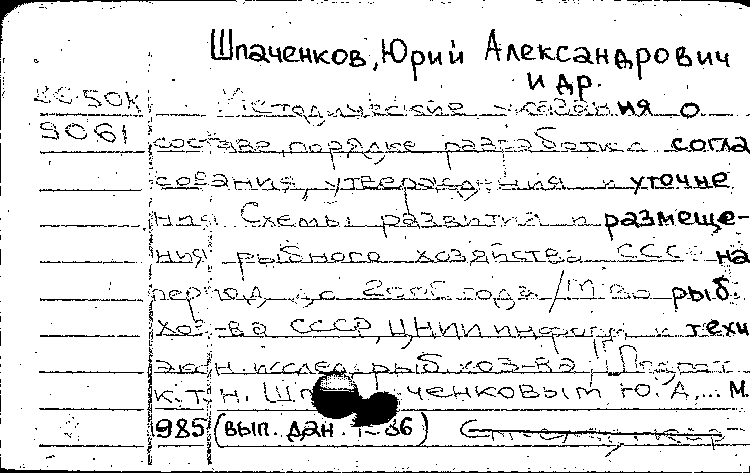 Шпаченков, Юрий Александрович
и др.
Методические указания о
9061
составе, порядке разработки согла
сования, утверждения и уточне
ния Схемы развития и размеще-
ния рыбного хозяйства СССР на
период до 2000 года / М-во рыб.
хоз-ва СССР, ЦНИИ информ. и техн
экон. исслед. рыб. хоз-ва;
к.т.н. Шпаченковым Ю. А, ... М.
985 (вып. дан. 1-86)